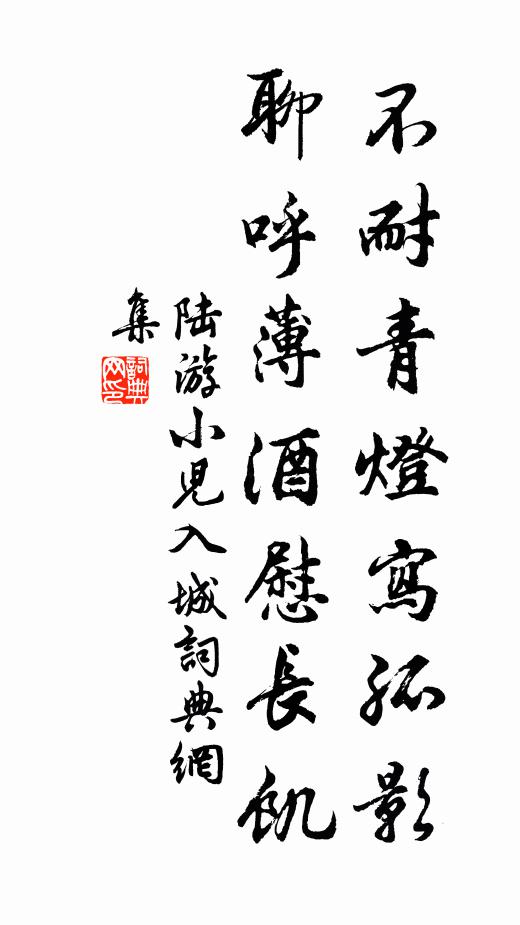 不耐青燈寫孤影
聊呼薄酒慰長飢
陸游小兒入城詞典網
集
詞典
网印